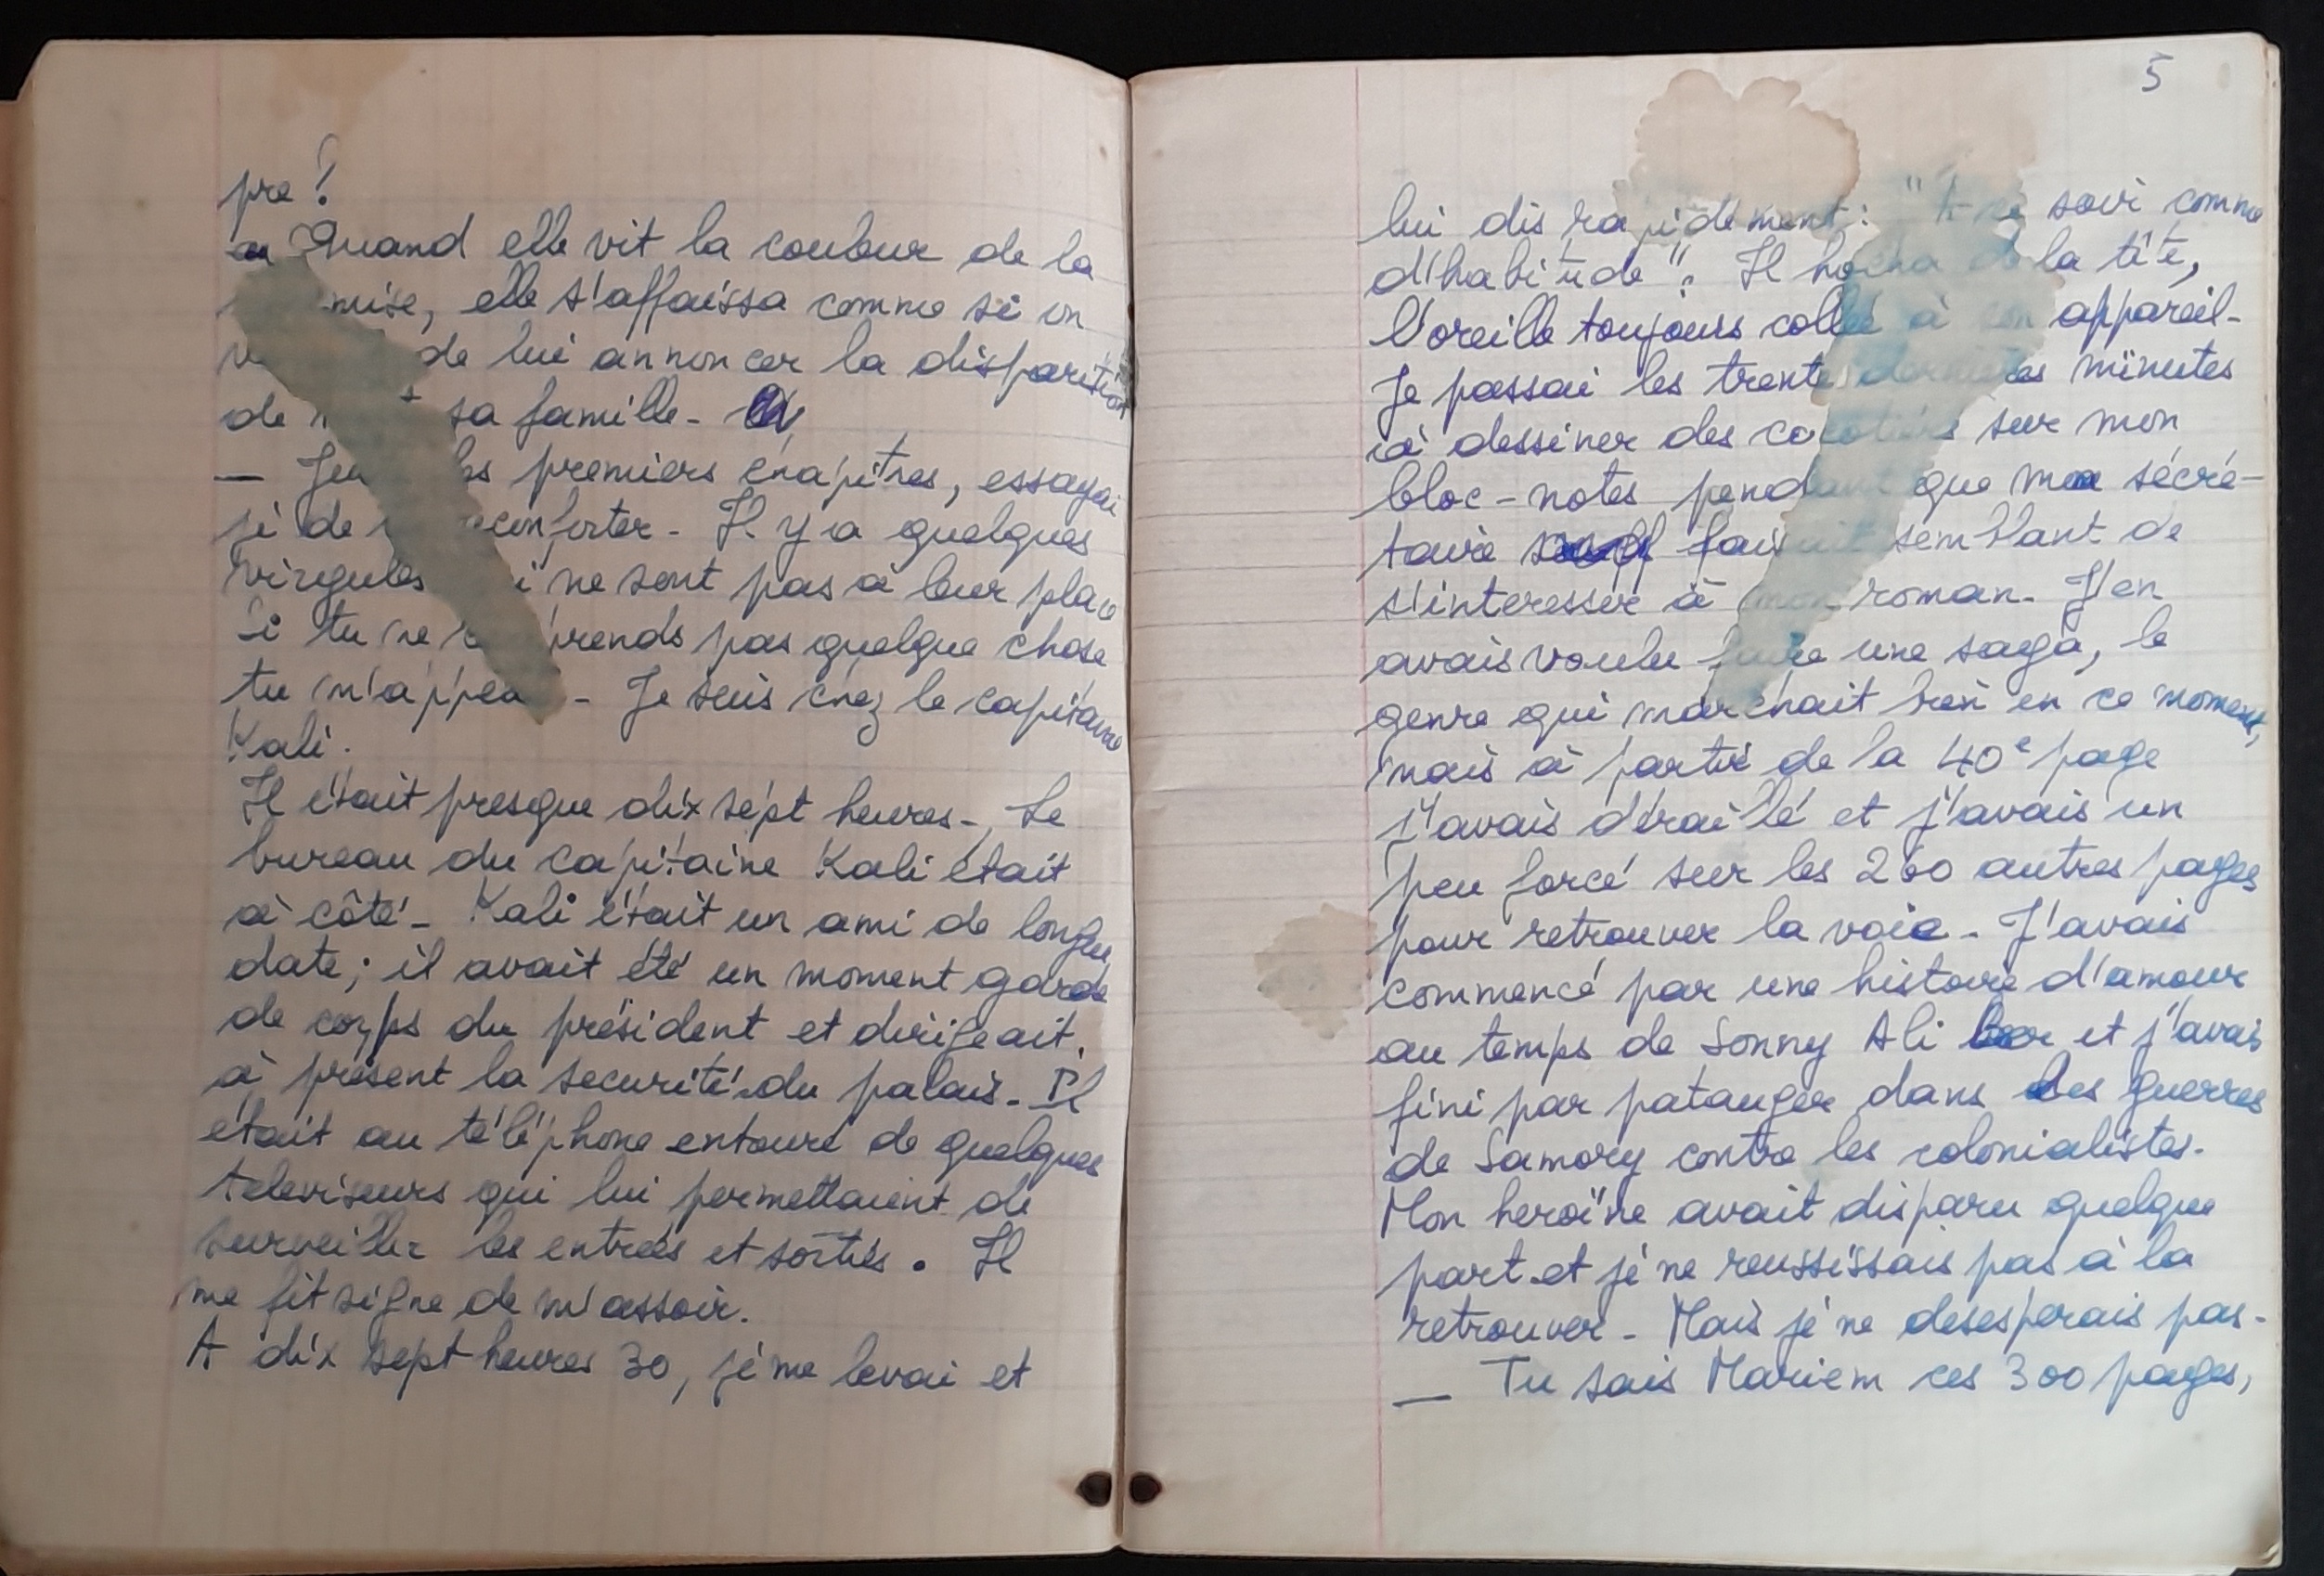 pre !
Quand elle vit la couleur de la
mise, elle s'affaissa comme si on
de lui annoncer la disparition
de sa famille -
— premiers chapitres, essayai
je de reconforter - Il y a quelques
virgules ne sont pas à leur place
Si tu ne prends pas quelque chose
tu - Je suis chez le capitaine
Kali.
Il était presque dix sept heures - Le
bureau du capitaine Kali était
à côté - Kali était un ami de longue
date ; il avait été un moment garde
de corps du président et dirigeait
à présent la securité du palais - Il
était au téléphone entouré de quelques
televiseurs qui lui permettaient de
surveiller les entrées et sorties. Il
me fit signe de m'assoir.
A dix sept heures 30, je me levai et
5
lui dis rapidement : " soir comme
d'habitude". Il hocha de la tête,
l'oreille toujours collée à son appareil -
Je passai les trente dernières minutes
à dessiner des sur mon
bloc - notes pendant que ma sécré-
taire faisait semblant de
s'interesser à mon roman - J'en
avais voulu faire une saga, le
genre qui marchait bien en ce moment,
mais à partir de la 40e page
j'avais déraillé et j'avais un
peu forcé sur les 260 autres pages
pour retrouver la voie - J'avais
commencé par une histoire d'amour
au temps de Sonny Ali ber et j'avais
fini par patauger dans les guerres
de Samory contre les colonialistes.
Mon heroïne avait disparu quelque
part et je ne reussissais pas à la
retrouver - Mais je ne desesperais pas -
— Tu sais Mariem ces 300 pages,